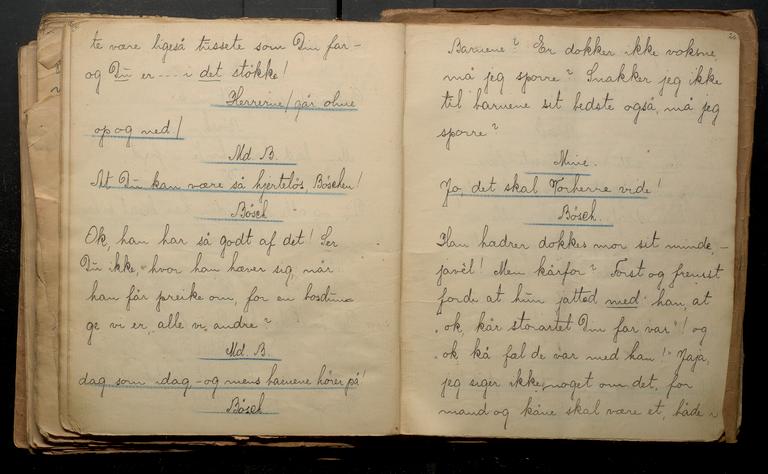 te være ligeså tussete som Din far –
og Du er --- i det stökke!
Herrerne / går ohne
op og ned /
Md. B.
At Du kan være så hjertelös, Böschen!
Bösch
Ok, han har så godt af det! Ser
Du ikke, hvor han hæver sig, når
han får preike om, for en bosdun-
ge vi er, alle vi andre?
Md. B.
dag som idag, – og mens barnene hörer på!
Bösch
24
Barnene? Er dokker ikke voksne,
må jeg spörre? Snakker jeg ikke
til barnene sit bedste også, må jeg
spörre?
Mine.
Jo, det skal Vorherre vide!
Bösch.
Han hadrer dokkes mor sit minde, –
javel! Men kårfor? Först og fremst
fordi at hun jatted med han, at
"ok, kår storartet Din far var"! og
"ok kå fal de var med han!" Jaja,
jeg siger ikke noget om det, for
mand og kåne skal være et, både i